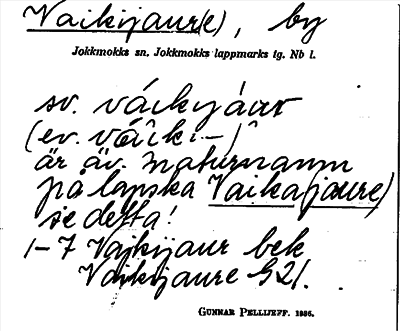 Vaikijaur(e), by
Jokkmokks sn. Jokkmokks lappmarks tg. Nb l.
sv. váikijáur
(ev. vȧîki–)
är äv. naturnamn
på lapska Vaika(jaure)
se detta!
1–7 Vajkijaur bek
Vaikijaure G21.
GUNNAR PELLIJEFF. 1936.